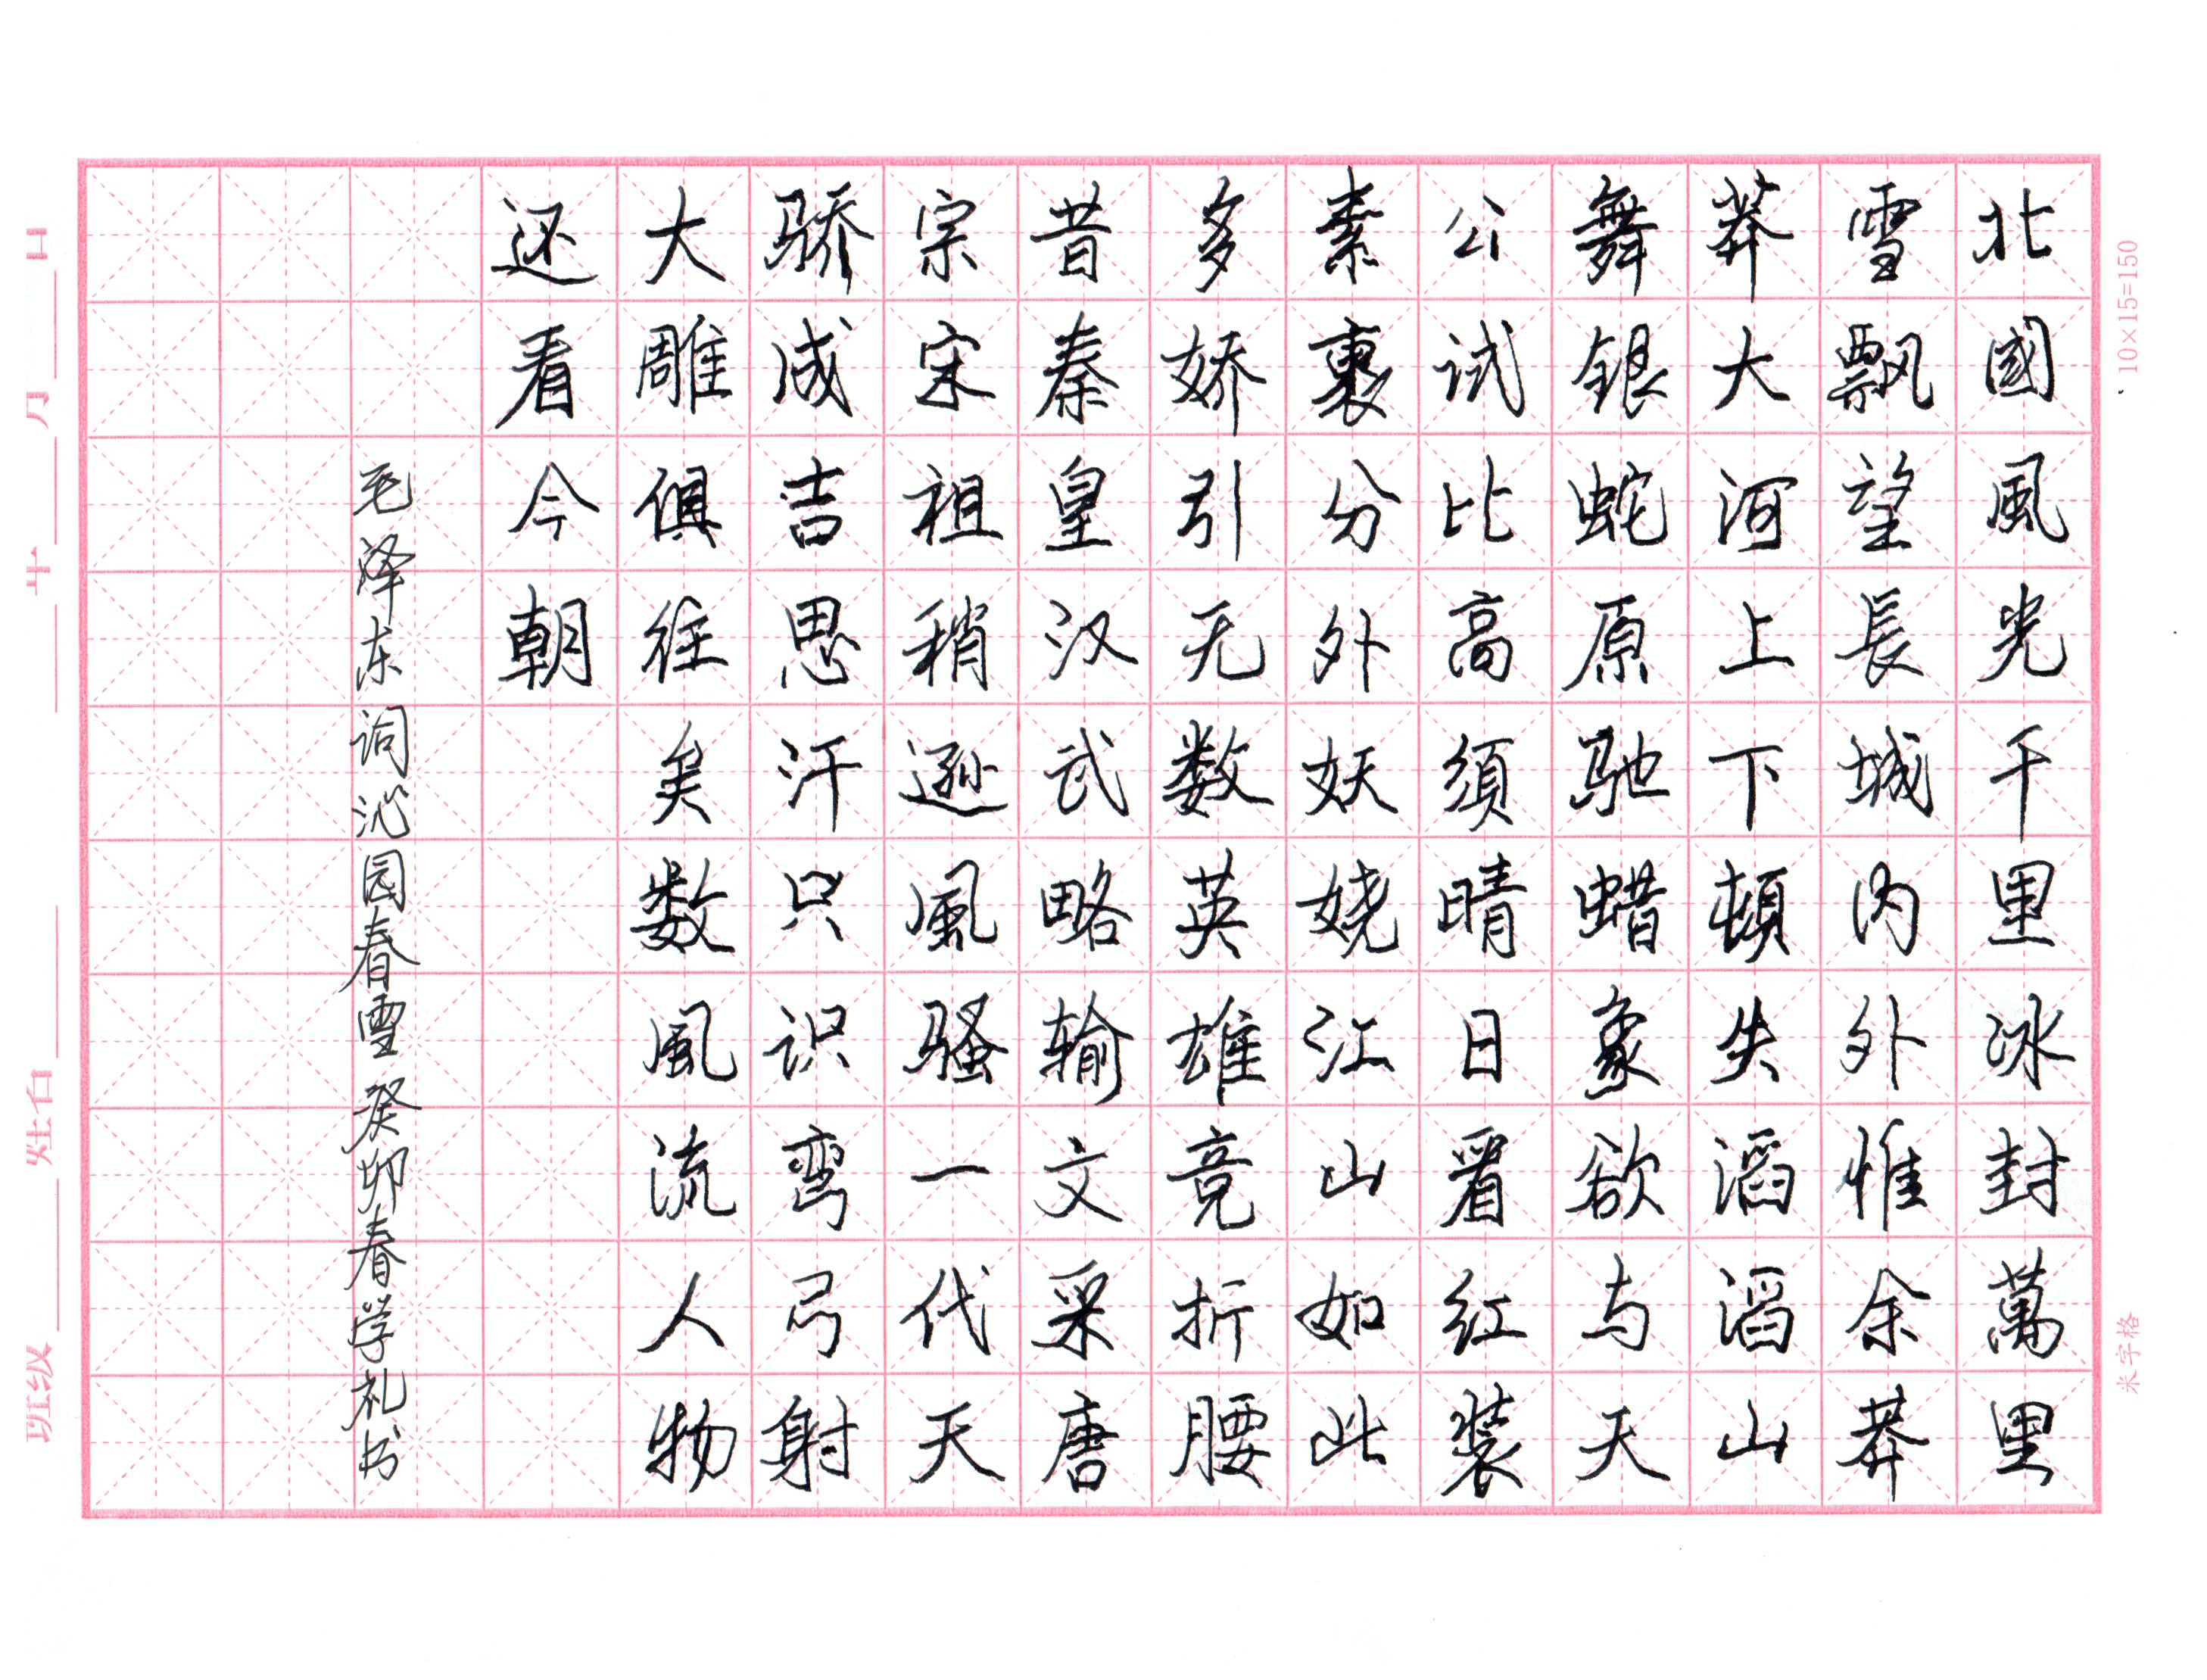 北國風光千里冰封萬里
雪飘望長城内外惟余莽
莽大河上下頓失滔滔山
舞銀蛇原驰蜡象欲与天
公试比高須晴日看红装
素裹分外妖娆江山如此
多娇引无数英雄竞折腰
昔秦皇汉武略输文采唐
宗宋祖稍逊風骚一代天
骄成吉思汗只识弯弓射
大雕俱往矣数風流人物
还看今朝
毛泽东词沁园春雪癸卯春学礼书
10×15=150
米字格
班级 姓名 年 月 日